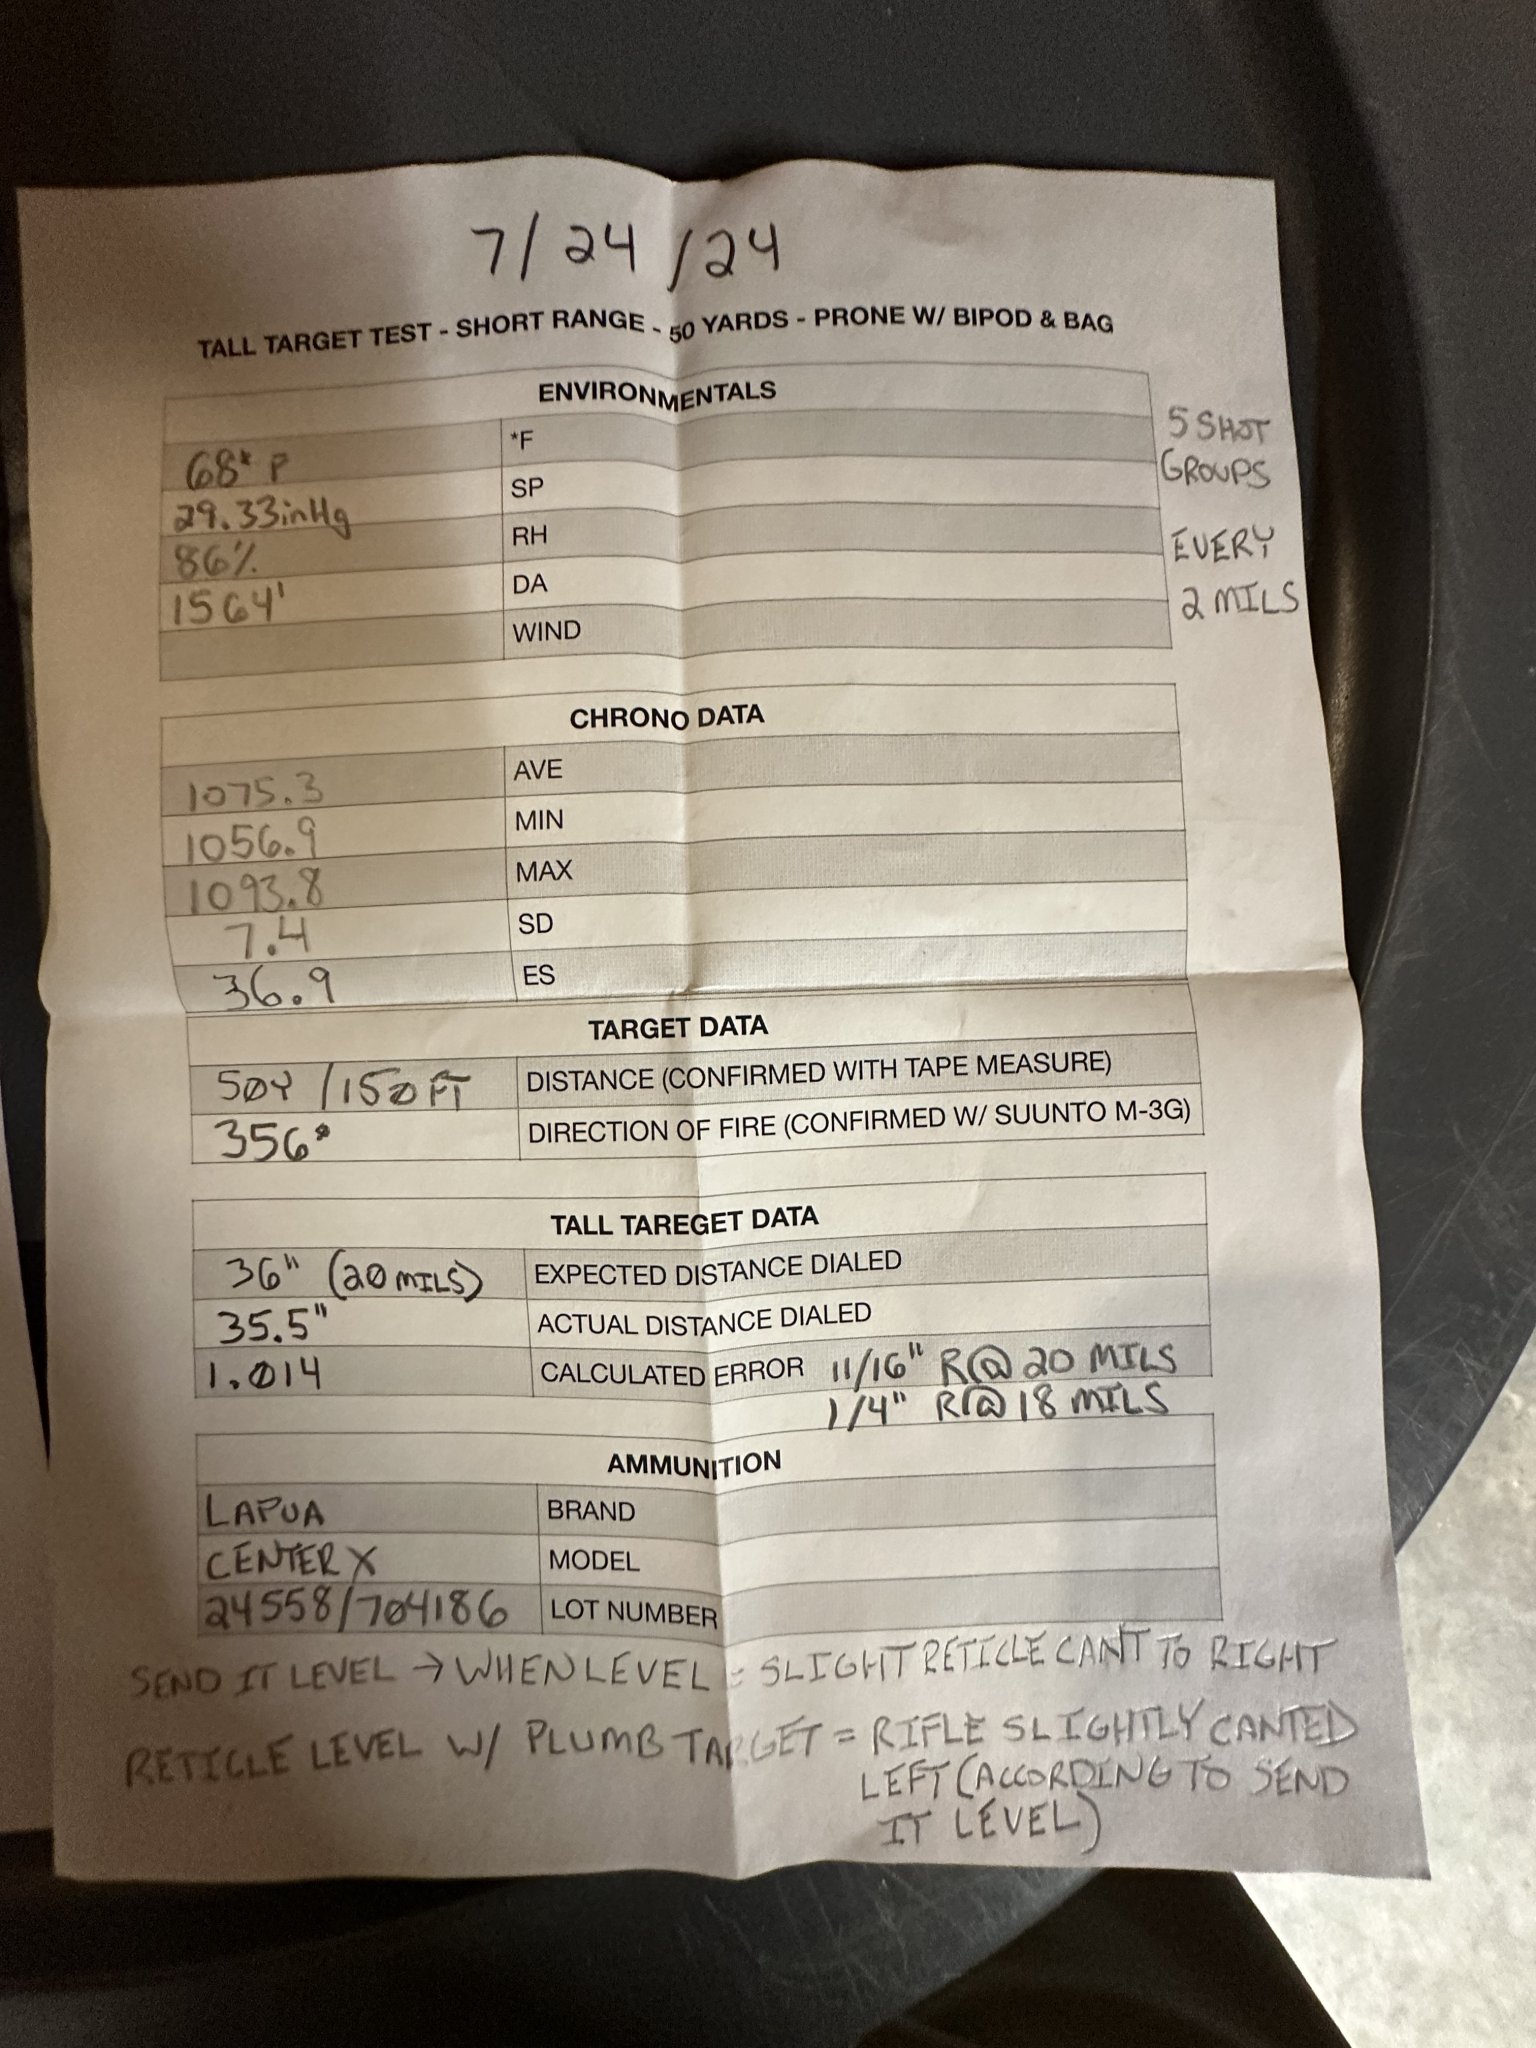 7/24/24
TALL TARGET TEST - SHORT RANGE - 50 YARDS - PRONE W/ BIPOD & BAG
ENVIRONMENTALS
68° F *F
29.33inHg SP
86% RH
1564' DA
WIND
5 SHOT
GROUPS
EVERY
2 MILS
CHRONO DATA
1075.3 AVE
1056.9 MIN
1093.8 MAX
7.4 SD
36.9 ES
TARGET DATA
50Y /150FT DISTANCE (CONFIRMED WITH TAPE MEASURE)
356° DIRECTION OF FIRE (CONFIRMED W/ SUUNTO M-3G)
TALL TAREGET DATA
36" (20 MILS) EXPECTED DISTANCE DIALED
35.5" ACTUAL DISTANCE DIALED
1.014 CALCULATED ERROR 11/16" R@ 20 MILS
1/4" R@ 18 MILS
AMMUNITION
LAPUA BRAND
CENTER X MODEL
24558/704186 LOT NUMBER
SEND IT LEVEL → WHEN LEVEL = SLIGHT RETICLE CANT TO RIGHT
RETICLE LEVEL W/ PLUMB TARGET = RIFLE SLIGHTLY CANTED
LEFT (ACCORDING TO SEND
IT LEVEL)